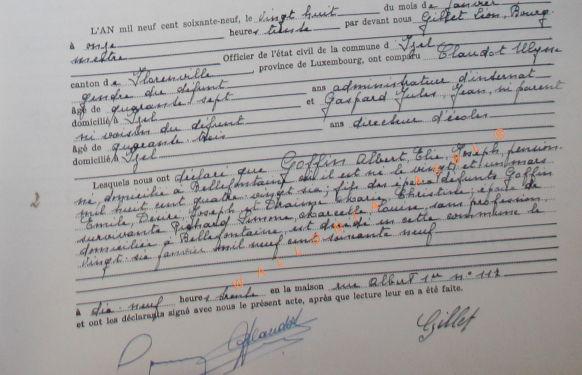 L'AN mil neuf cent soixante-neuf, le vingt huit du mois de janvier
à onze heures trente par devant nous Gillet Léon, Bourg-
mestre Officier de l'état civil de la commune d'Izel
canton de Florenville, province de Luxembourg, ont comparu Claudot Ulysse
gendre du défunt
âgé de quarante sept ans administrateur d'internat
domicilié à Izel et Gaspard Jules, Jean, ni parent
ni voisin du défunt
âgé de quarante trois ans directeur d'écoles
domicilié à Izel
Lesquels nous ont déclaré que Goffin Albert, Elie, Joseph, pension-
né, domicilié à Bellefontaine, où il est né le vingt et un mars
mil huit cent quatre-vingt six; fils des époux défunts Goffin
Emile Désiré Joseph et Marie Christine; époux de
survivante Pichard Simone, Marcelle, Louise, sans profession,
domiciliée à Bellefontaine, est décédé en cette commune le
vingt-six janvier mil neuf cent soixante neuf
à dix-neuf heures trente en la maison rue Albert 1er n° 112
et ont les déclarants signé avec nous le présent acte, après que lecture leur en a été faite.
Claudot Gillet
2